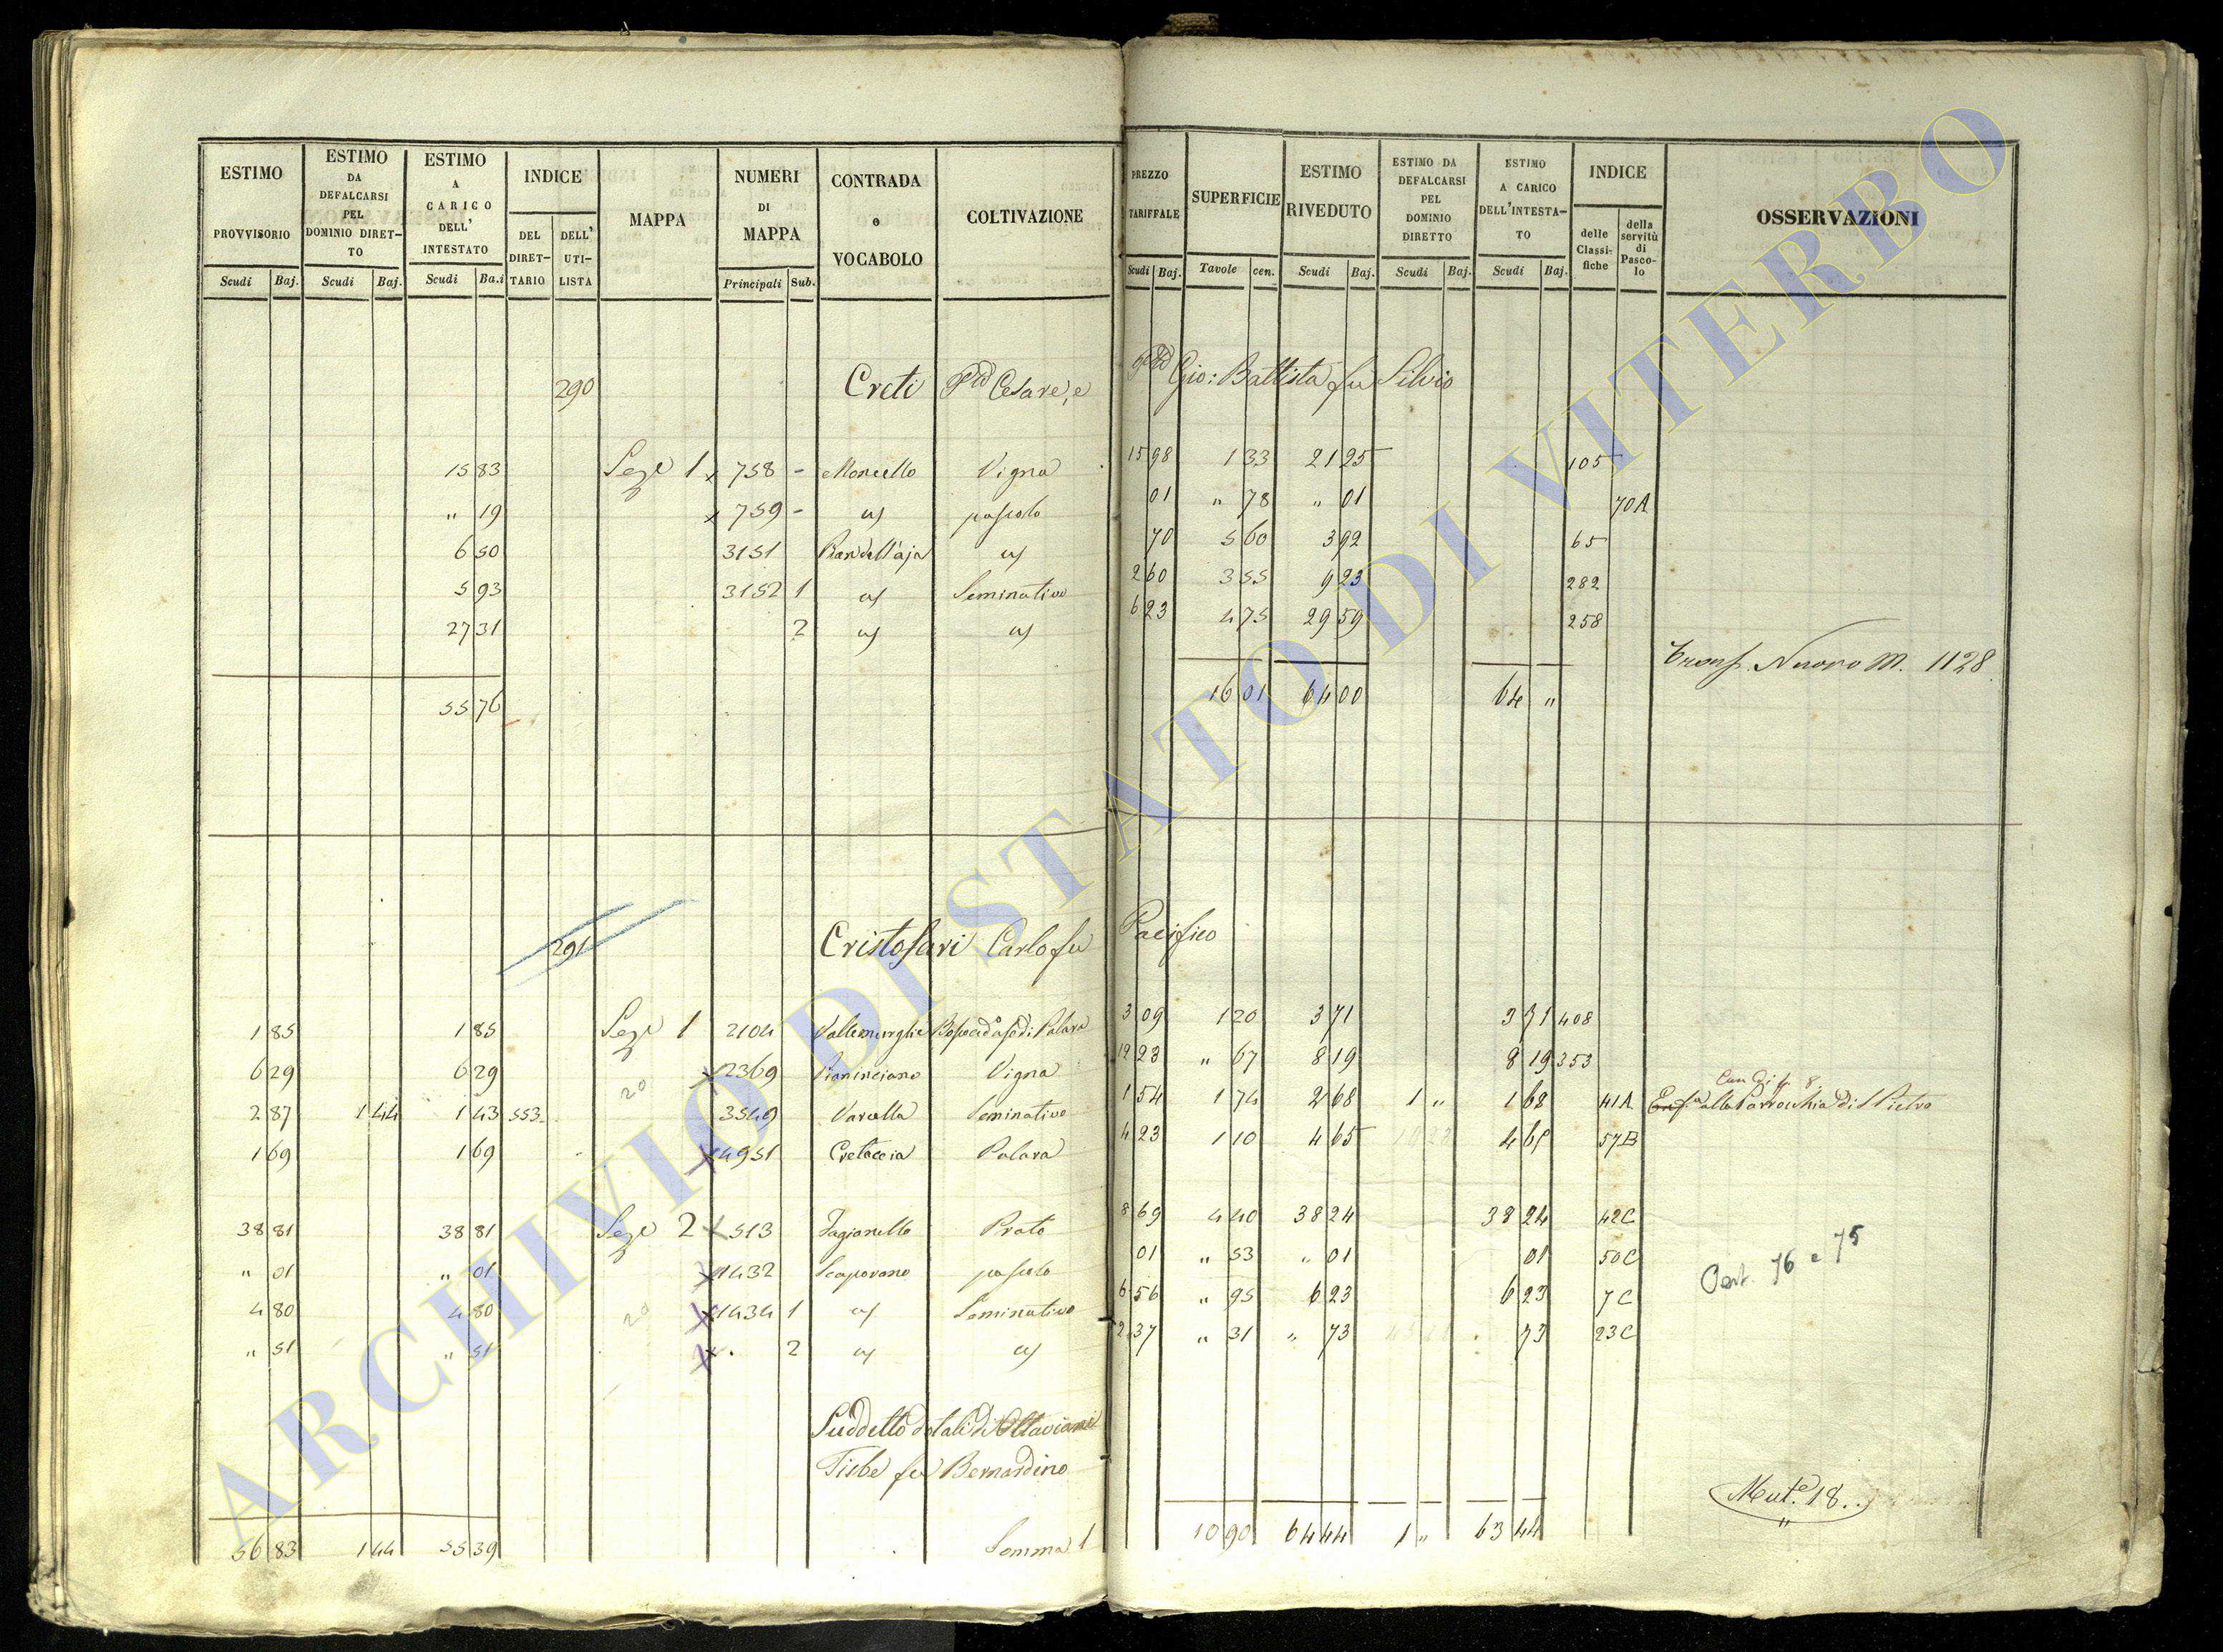 ESTIMO PROVVISORIO Scudi Baj.
ESTIMO DA DEFALCARSI PEL DOMINIO DIRET-TO Scudi Baj.
ESTIMO A CARICO DELL' INTESTATO Scudi Ba.i
INDICE DEL DIRET-TARIO DELL' UTI-LISTA
MAPPA
NUMERI DI MAPPA Principali Sub.
CONTRADA o VOCABOLO
COLTIVAZIONE
PREZZO TARIFFALE Scudi Baj.
SUPERFICIE Tavole cen.
ESTIMO RIVEDUTO Scudi Baj.
ESTIMO DA DEFALCARSI PEL DOMINIO DIRETTO Scudi Baj.
ESTIMO A CARICO DELL'INTESTA-TO Scudi Baj.
INDICE delle Classi-fiche della servitù di Pasco-lo
OSSERVAZIONI
290 Creti Cesare, e Gio: Battista fu Silvio
15 83 Sez.e 1 x 758 - Moncello Vigna 15 98 1 33 21 25 105
" 19 x 759 - pascolo 01 " 78 " 01 70A
6 50 3151 Pian dell'aja 70 5 60 3 92 65
5 93 3152 1 Seminativo 2 60 3 55 9 23 282
27 31 2 6 23 4 75 29 59 258
Nuovo N. 1128
55 76 16 01 64 00 64 "
291 Cristofari Carlo fu Pacifico
1 85 1 85 Sez.e 1 2104 3 09 1 20 3 71 3 71 408
6 29 6 29 20 x 2369 Vigna 12 23 " 67 8 19 8 19 353
2 87 1 44 1 43 553 3549 Varcella Seminativo 1 54 1 74 2 68 1 " 1 68 41A alla Parrocchia di S Pietro
1 69 1 69 x 4951 Cretaccia Palara 4 23 1 10 4 65 4 65 57B
38 81 38 81 Sez.e 2 x 513 Fagianello Prato 8 69 4 40 38 24 38 24 42C
" 01 " 01 x 1432 pascolo 01 " 53 " 01 01 50C
Part. 76 e 75
4 80 4 80 20 x 1434 1 Seminativo 6 56 " 95 6 23 6 23 7C
" 51 " 51 x 2 2 37 " 31 " 73 73 23C
Suddetto dotali di Ottaviani
Tisbe fu Bernardino
Mut.e 18.
56 83 1 44 55 39 Somma 10 90 64 44 1 " 63 44
ARCHIVIO DI STATO DI VITERBO